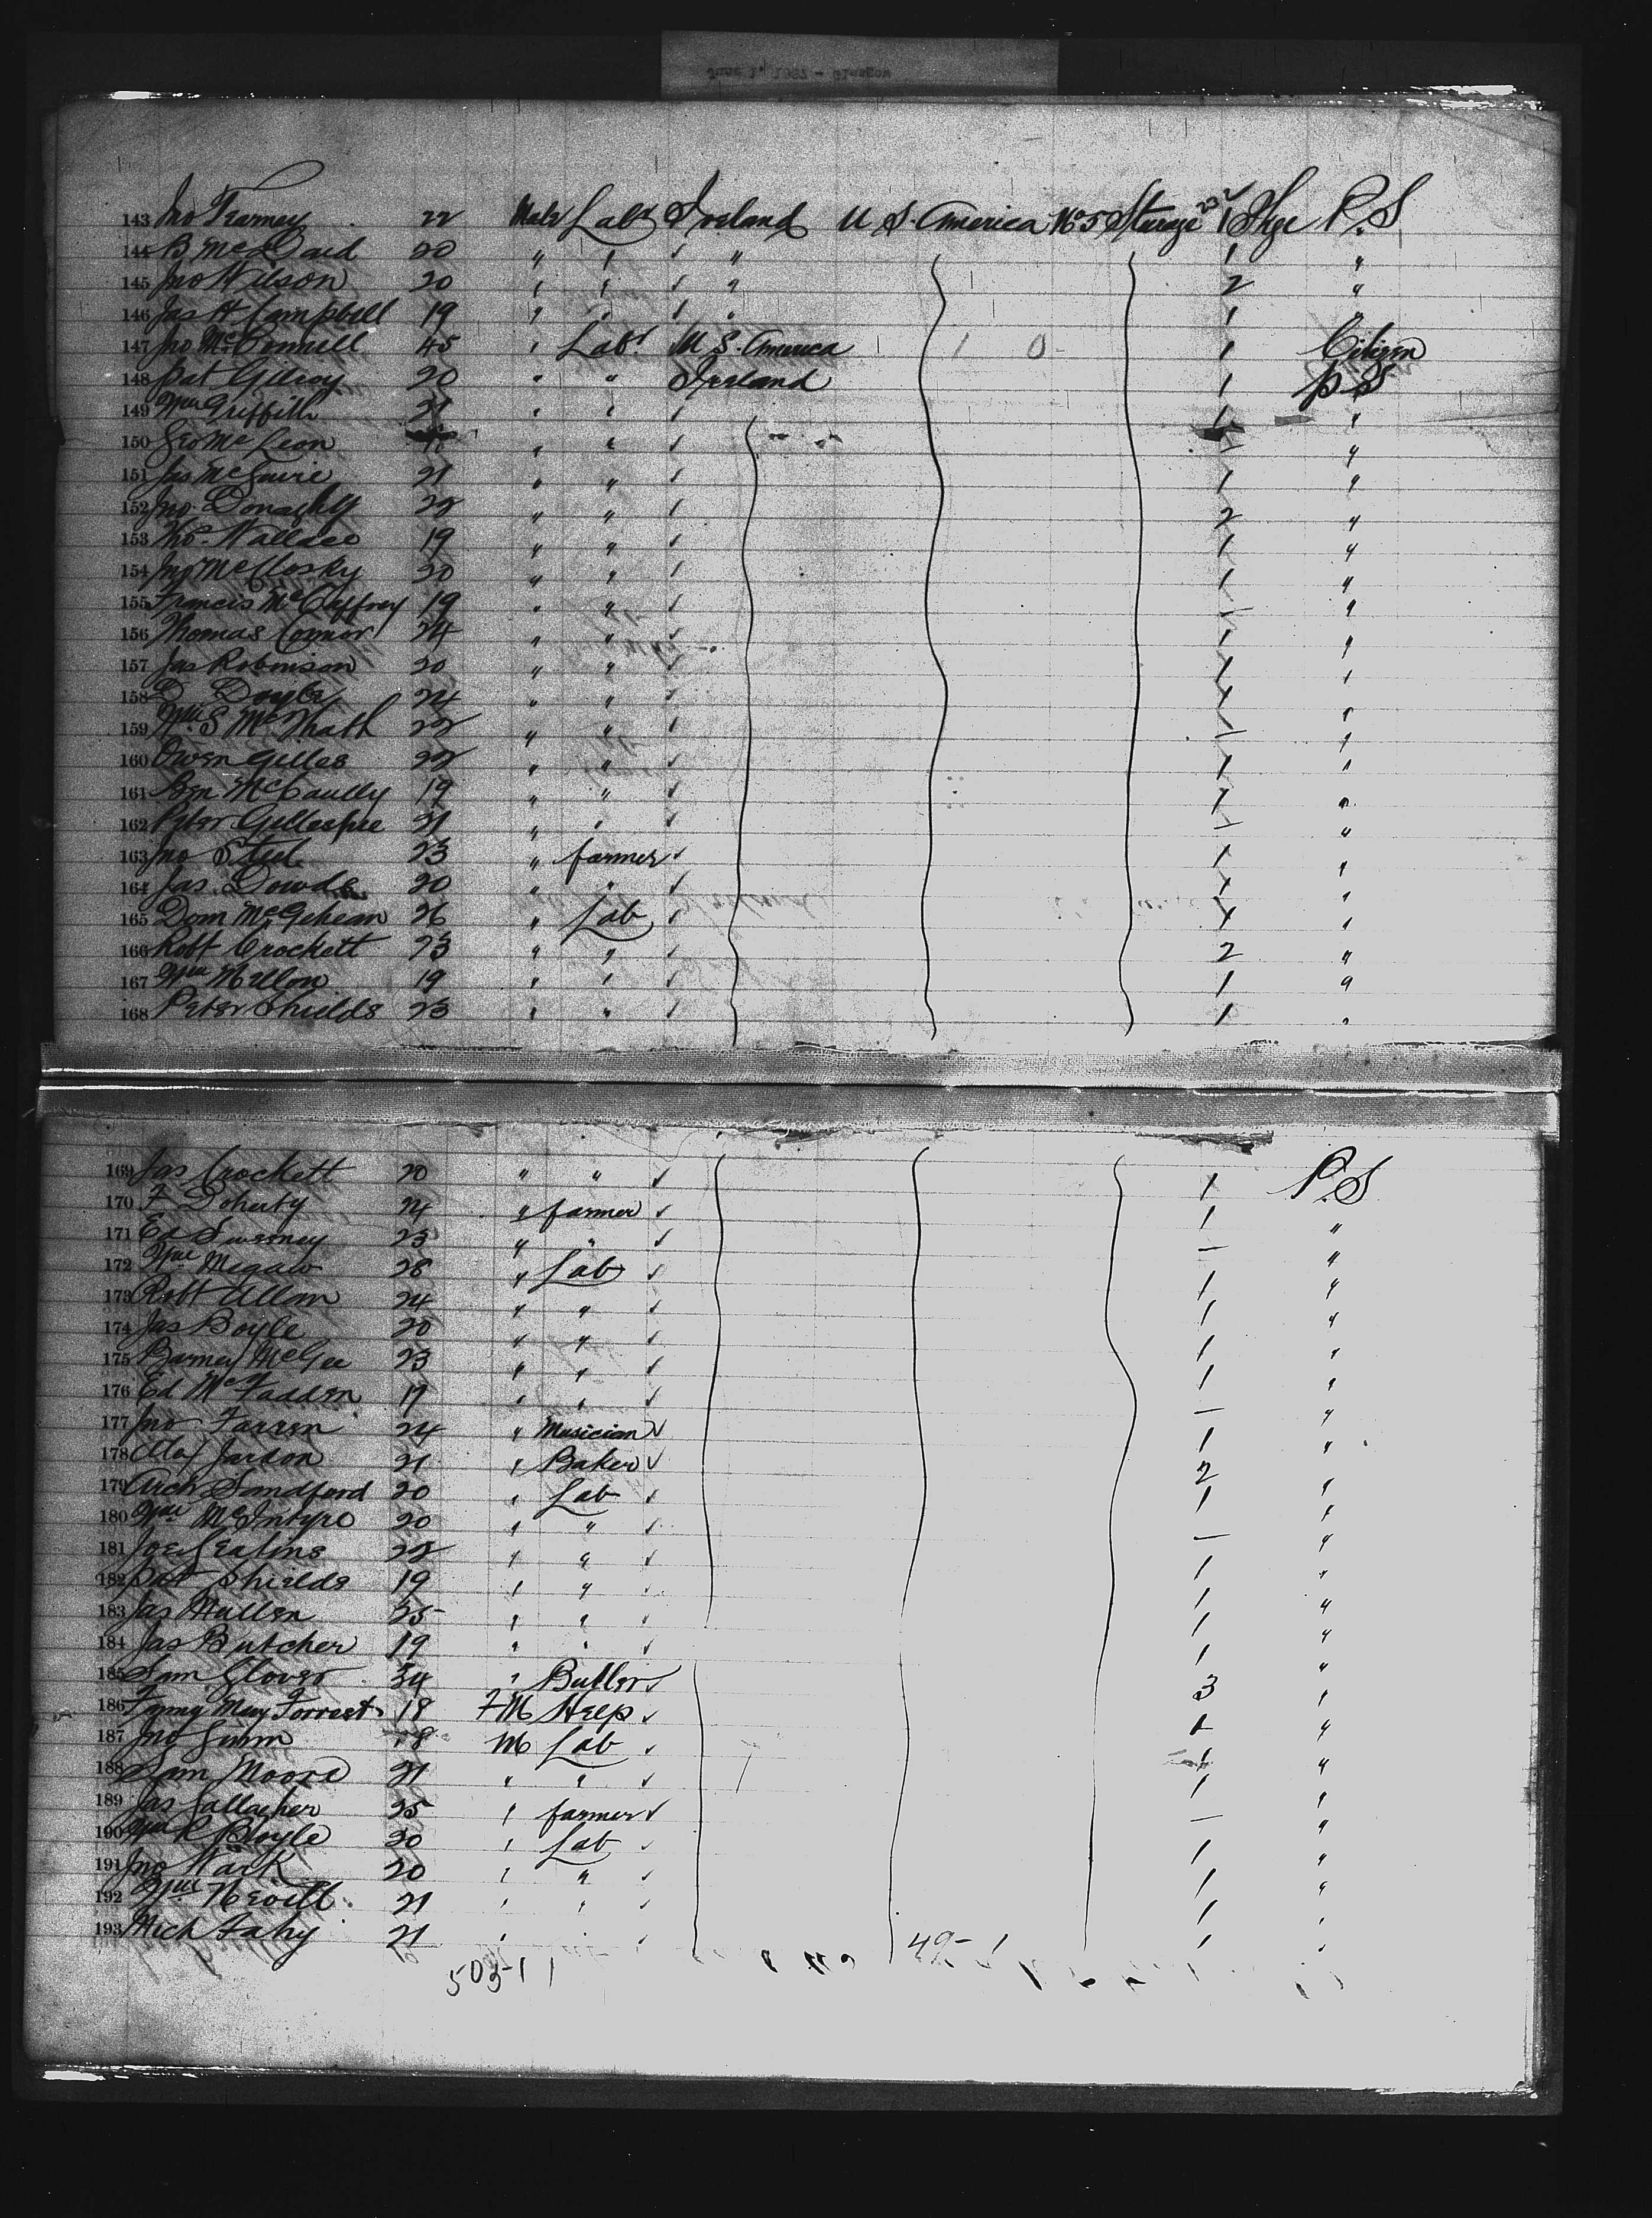 June 1, 1887 - Glasgow
143 Jno Fearney 22 Male Labr Ireland U S. America No 5 Sterage 1 Pkge P.S
144 B McDaid 20 " " " 1 "
145 Jno Wilson 20 " " " 2 "
146 Jas H Campbell 19 " " " 1 "
147 Jno McConnell 45 " Labr U S. America 1 0 1 Citizen
148 Pat Gilroy 20 " " Ireland 1 P S
149 Wm Griffith 21 " " 1 "
150 Geo McLeon " " "
151 Jas McGuire 21 " " 1 "
152 Jno Donaghy 22 " " 2 "
153 Tho Wallace 19 " " 1 "
154 Jno McClosky 20 " " 1 "
155 Francis McCaffrey 19 " " "
156 Thomas Connor 24 " " 1 "
157 Jas Robinson 20 " " 1 "
158 Doyle 24 " " 1 "
159 Wm S McThath 22 " " "
160 Owen Gilles 22 " " 1 "
161 McCaully 19 " " 1 "
162 Peter Gillespie 21 " " — "
163 Jno Steel 23 " farmer 1 "
164 Jas. Dowds 20 " " 1 "
165 Dom McGehean 26 " Lab 1 "
166 Robt Crockett 23 " " 2 "
167 Wm Millon 19 " " 1 "
168 Peter Shields 23 " " 1 "
169 Jas Crockett 20 " " 1 P.S
170 F Doherty 24 " farmer 1 "
171 Ed Sweeney 23 " " — "
172 Wm Megaw 28 " Lab 1 "
173 Robt Allen 24 " " 1 "
174 Jas Boyle 20 " " 1 "
175 Barney McGee 23 " " 1 "
176 Ed McFadden 19 " " — "
177 Jno Farren 24 " Musician 1 "
178 Alex Jardon 21 " Baker 2 "
179 Arch Sandford 20 " Lab 1 "
180 Wm McIntyre 20 " " — "
181 Joe Geatins 22 " " 1 "
182 Pat Shields 19 " " 1 "
183 Jas Mullen 25 " " 1 "
184 Jas Butcher 19 " " 1 "
185 Sam Glover 34 " Butler 3 "
186 Fanny May Forrest 18 F M Help 1 "
187 Jno Gunn 18 M Lab 1 "
188 Sam Moore 21 " " 1 "
189 Jas Gallagher 25 " farmer — "
190 Wm R Boyle 20 " Lab 1 "
191 Jno Wark 20 " " 1 "
192 Wm Nevill 21 " " 1 "
193 Mich Fahy 21 " " 49-1 1 "
503-11